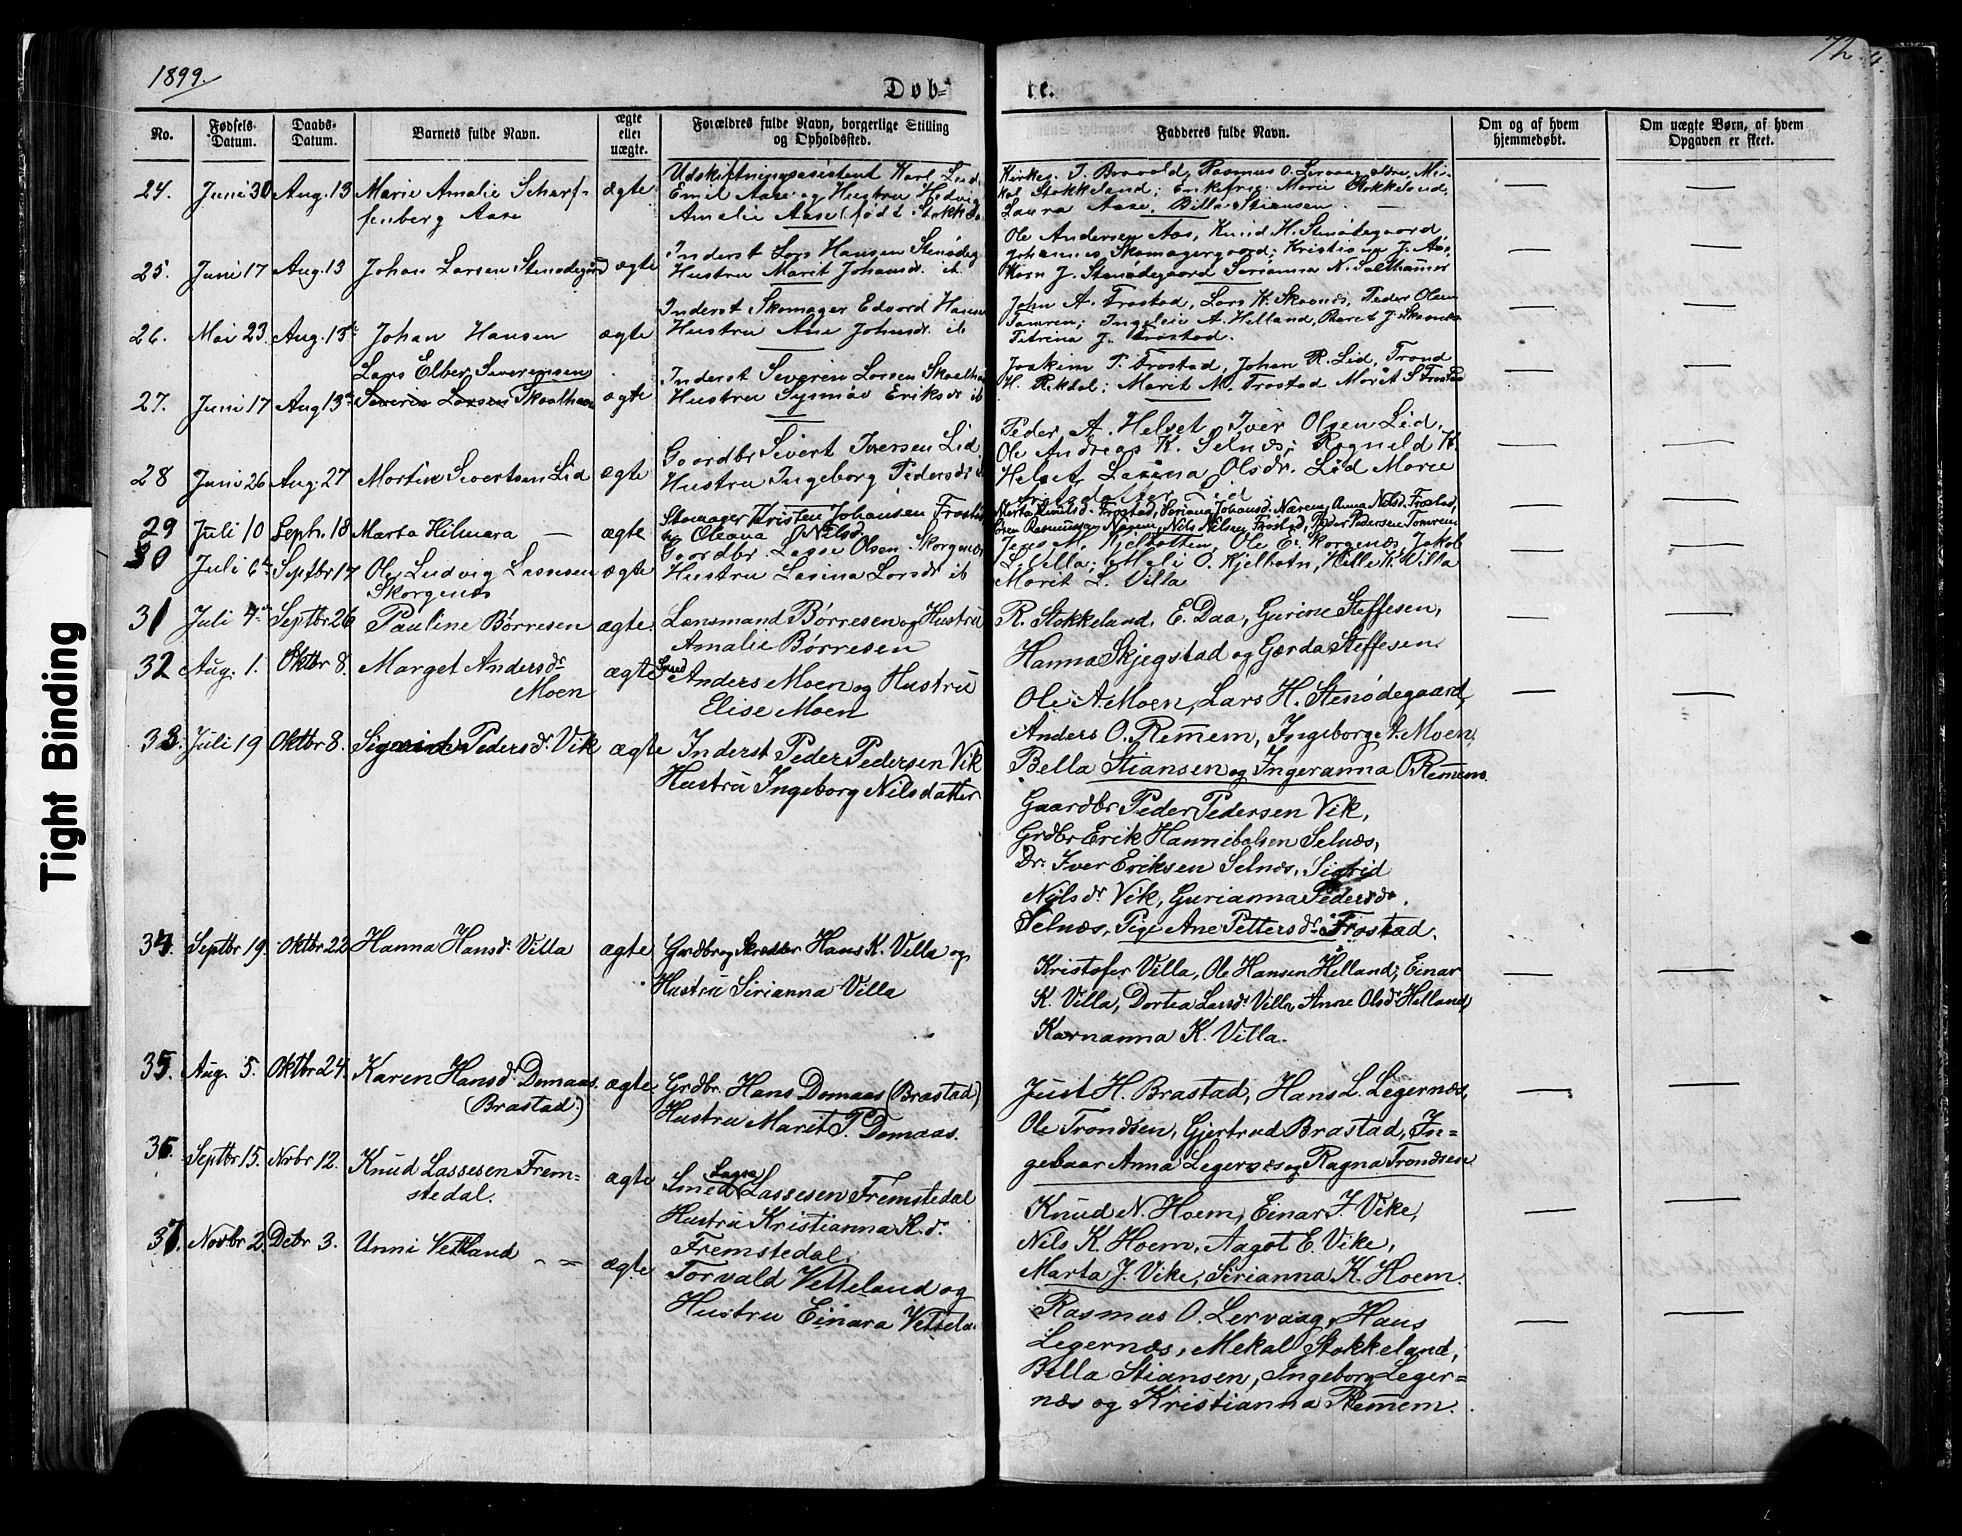 1899.
Døb=
te.
72
4.
No.
Fødsels-
Datum.
Daabs-
Datum.
Barnets fulde Navn.
ægte
eller
uægte.
Forældres fulde Navn, borgerlige Stilling
og Opholdssted.
Fadderes fulde Navn.
Om og af hvem
hjemmedøbt.
Om uægte Børn, af hvem
Opgaven er skeet.
24. Juni 30 Aug. 13 Marie Amalie Scharf-
fenberg Aase
ægte
Udskiftningsassistent Karl
Emil Aase og Hustru Hedvig
Amalie Aase (født
Rasmus O. Lervaag
Stokkeland; Enkefru Marie Stokkeland,
Laura Aase, Bella Stiansen —
25. Juni 17 Aug. 13 Johan Larsen Stenødegård ægte
Inderst Lars Hansen Stenødeg
Hustru Marit Johansdr. ib
Ole Andersen Aas, Knud H. Stenødegaard,
Johannes Skomagergaard; Kristianne J. Aas,
Karn J. Stenødegaard
26. Mai 23 Aug. 13de Johan Hansen ægte
Inderst Skomager Edvard Hansen
Hustru Ane Johnsdr. ib
John A. Frostad, Lars K. Skavnes, Peder Olsen
Tomren; Ingeleie A. Helland, Beret J. Skavnes
Petrina J. Frostad.
27. Juni 17 Aug 13de Lars Elber Severinsen
Severin Larsen Skaalhavn ægte
Inderst Severin Larsen Skaalhav
Hustru Synnøv Eriksdr ib
Joakim T. Frostad, Johan R. Lid, Trond
H. Rekdal; Marit M. Frostad Marit S Frostad
28 Juni 26 Aug. 27 Martin Sivertsen Lid ægte
Gaardbr Sivert Iversen Lid,
Hustru Ingeborg Pedersdr
Peder A. Helset Iver Olsen Lid,
Ole Andreas K. Selnæs; Ragnild K.
Helset, Lasina Olsdr. Lid Marie
29 Juli 10 Septr. 18 Marta Hilmara — ægte
Skomager Kristen Johansen Frostad
og Oleana Nilsd.
Marta Frostad, Seriana Johansd. Nærem, Anna Nilsd. Frostad,
Søren Rasmussen Nærem, Nils Nilsen Frostad, Peder Pedersen Tomrem
30 Juli 6te Septbr 17 Ole Ludvig Lassesen
Skorgenes
ægte
Gaardbr. Lasse Olsen Skorgenæs
Hustru Lasina Larsdr ib
Jens M. Kjelbotten, Ole E. Skorgenæs, Jakob
L. Villa; Mali O. Kjelbotn, Hille K. Villa
Marit L. Villa
31 Juli 4de Septbr 26 Pauline Børresen ægte.
Lensmand Børresen og Hustru
Amalie Børresen
R. Stokkeland, E. Daa, Gurine Steffesen,
Hanna Skjegstad og Gærda Steffesen.
32 Aug. 1. Oktbr 8. Marget Andersdr
Moen
ægte
Smed
Anders Moen og Hustru
Elise Moen
Ole A. Moen, Lars H. Stenødegaard,
Anders O. Remem, Ingeborg A. Moen,
Bella Stiansen og Ingeranna O. Remem.
33. Juli 19 Oktbr 8. Pedersdr. Vik ægte
Inderst Peder Pedersen Vik
Hustru Ingeborg Nilsdatter
Gaardbr Peder Pedersen Vik,
Grdbr Erik Hannibalsen Selnæs,
Dr. Iver Eriksen Selnæs, Sigrid
Nilsdr Vik, Gurianna Pedersdr.
Selnæs, Pige Ane Pettersdr. Frostad.
34. Septbr 19. Oktbr 22 Hanna Hansdr. Villa ægte
Grdbr og Skrædder Hans K. Villa og
Hustru Sirianna Villa
Kristofer Villa, Ole Hansen Helland; Einar
K. Villa, Dortea Larsdr. Villa, Anne Olsdr. Helland,
Karnanna K. Villa.
35. Aug. 5. Oktbr 24. Karen Hansdr. Domaas.
(Brastad.)
ægte
Grdbr. Hans Domaas (Brastad)
Hustru Marit P. Domaas.
Just H. Brastad, Hans L. Legernæs,
Ole Trondsen, Gjertrud Brastad, In=
gebaar Anna Legernæs og Ragna Trondsen
36 Septbr 15. Novbr 12. Knud Lassesen Frem=
stedal.
ægte
Smed Lasse Lassesen Fremstedal
Hustru Kristianna K. dr.
Fremstedal.
Knud N. Hoem, Einar J. Vike,
Nils K. Hoem, Aagot E. Vike,
Marta J. Vike, Sirianna K. Hoem.
37. Novbr 2. Decbr 3. Unni Vetteland ægte
Torvald Vetteland og
Hustru Einara Vettela
Rasmus O. Lervaag, Hans
Legernæs, Mekal Stokkeland,
Bella Stiansen, Ingeborg Leger=
næs og Kristianna Remem.
Tight Binding